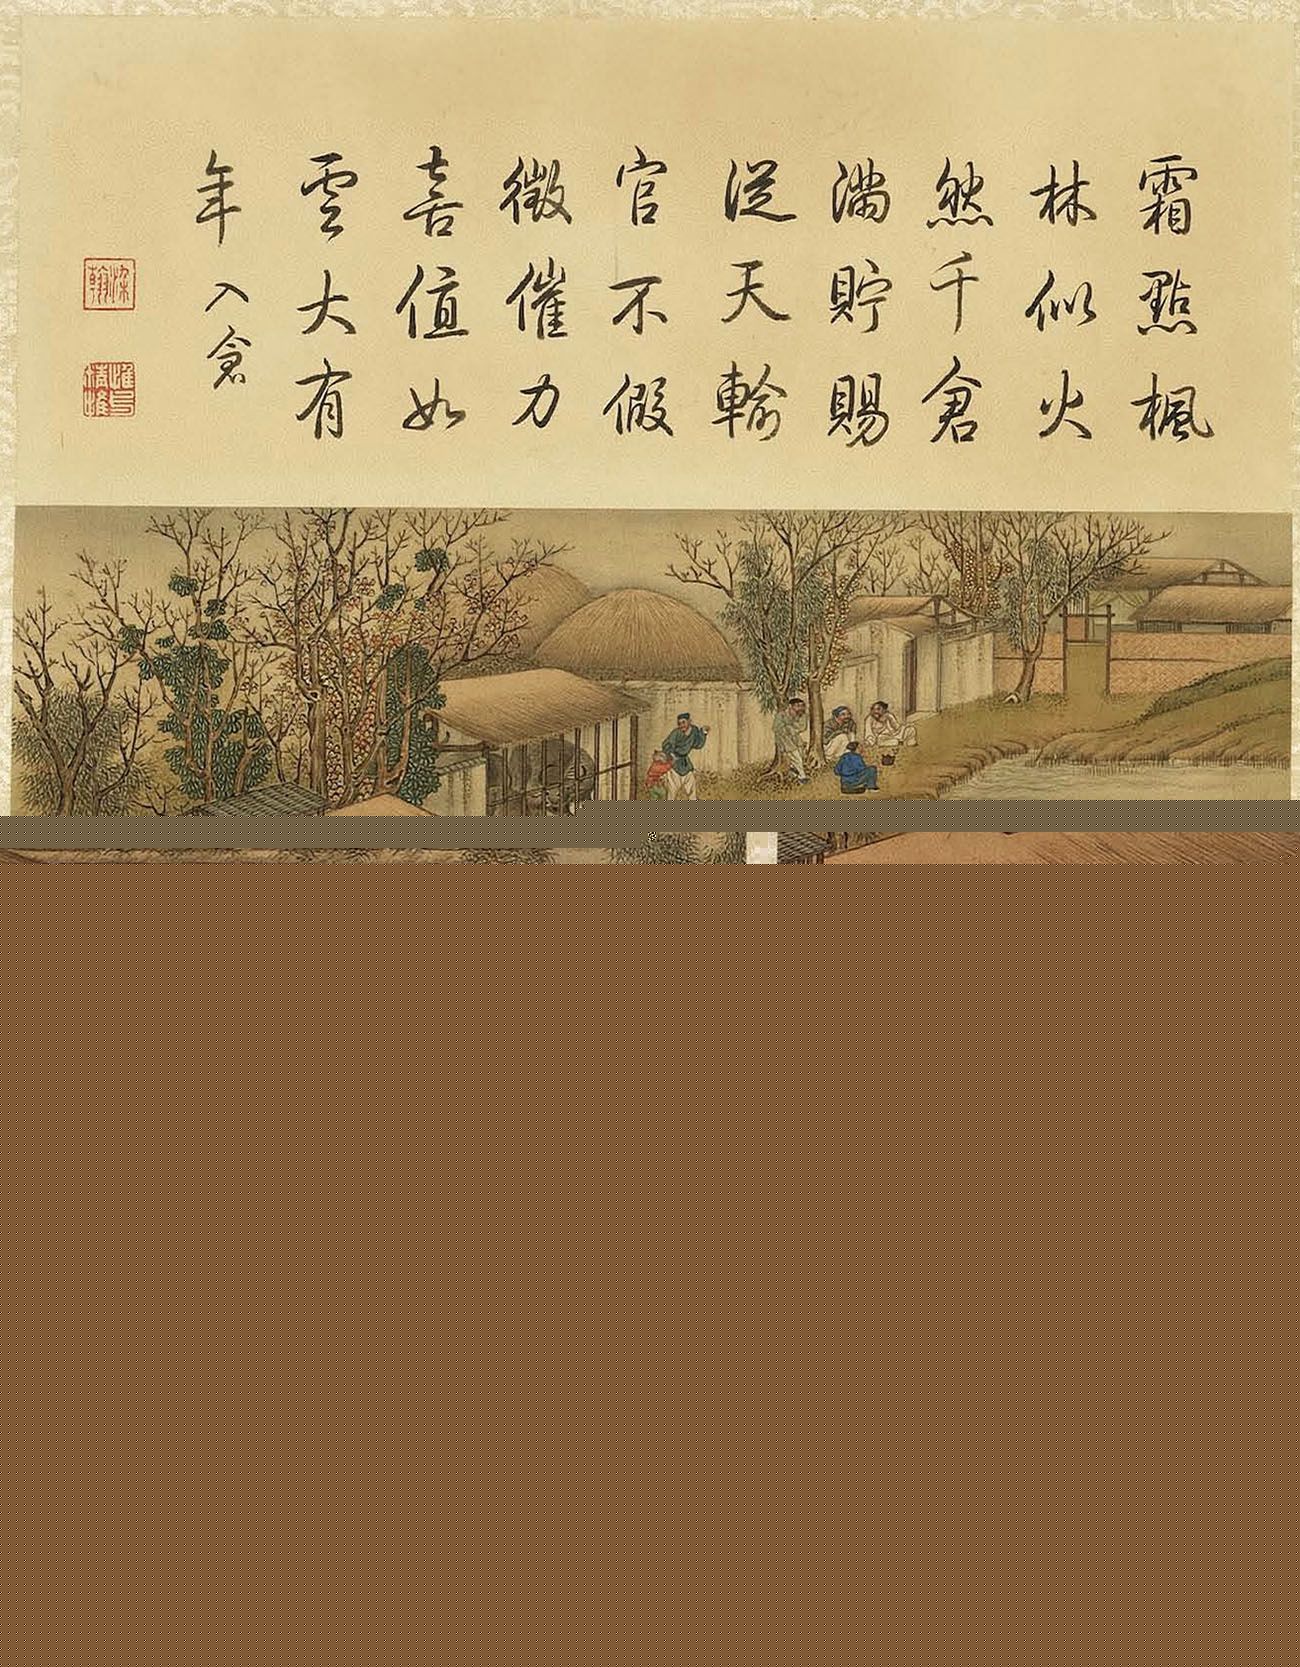 霜點楓
林似火
然千倉
滿貯賜
從天輸
官不假
徵催力
喜值如
雲大有
年 入倉